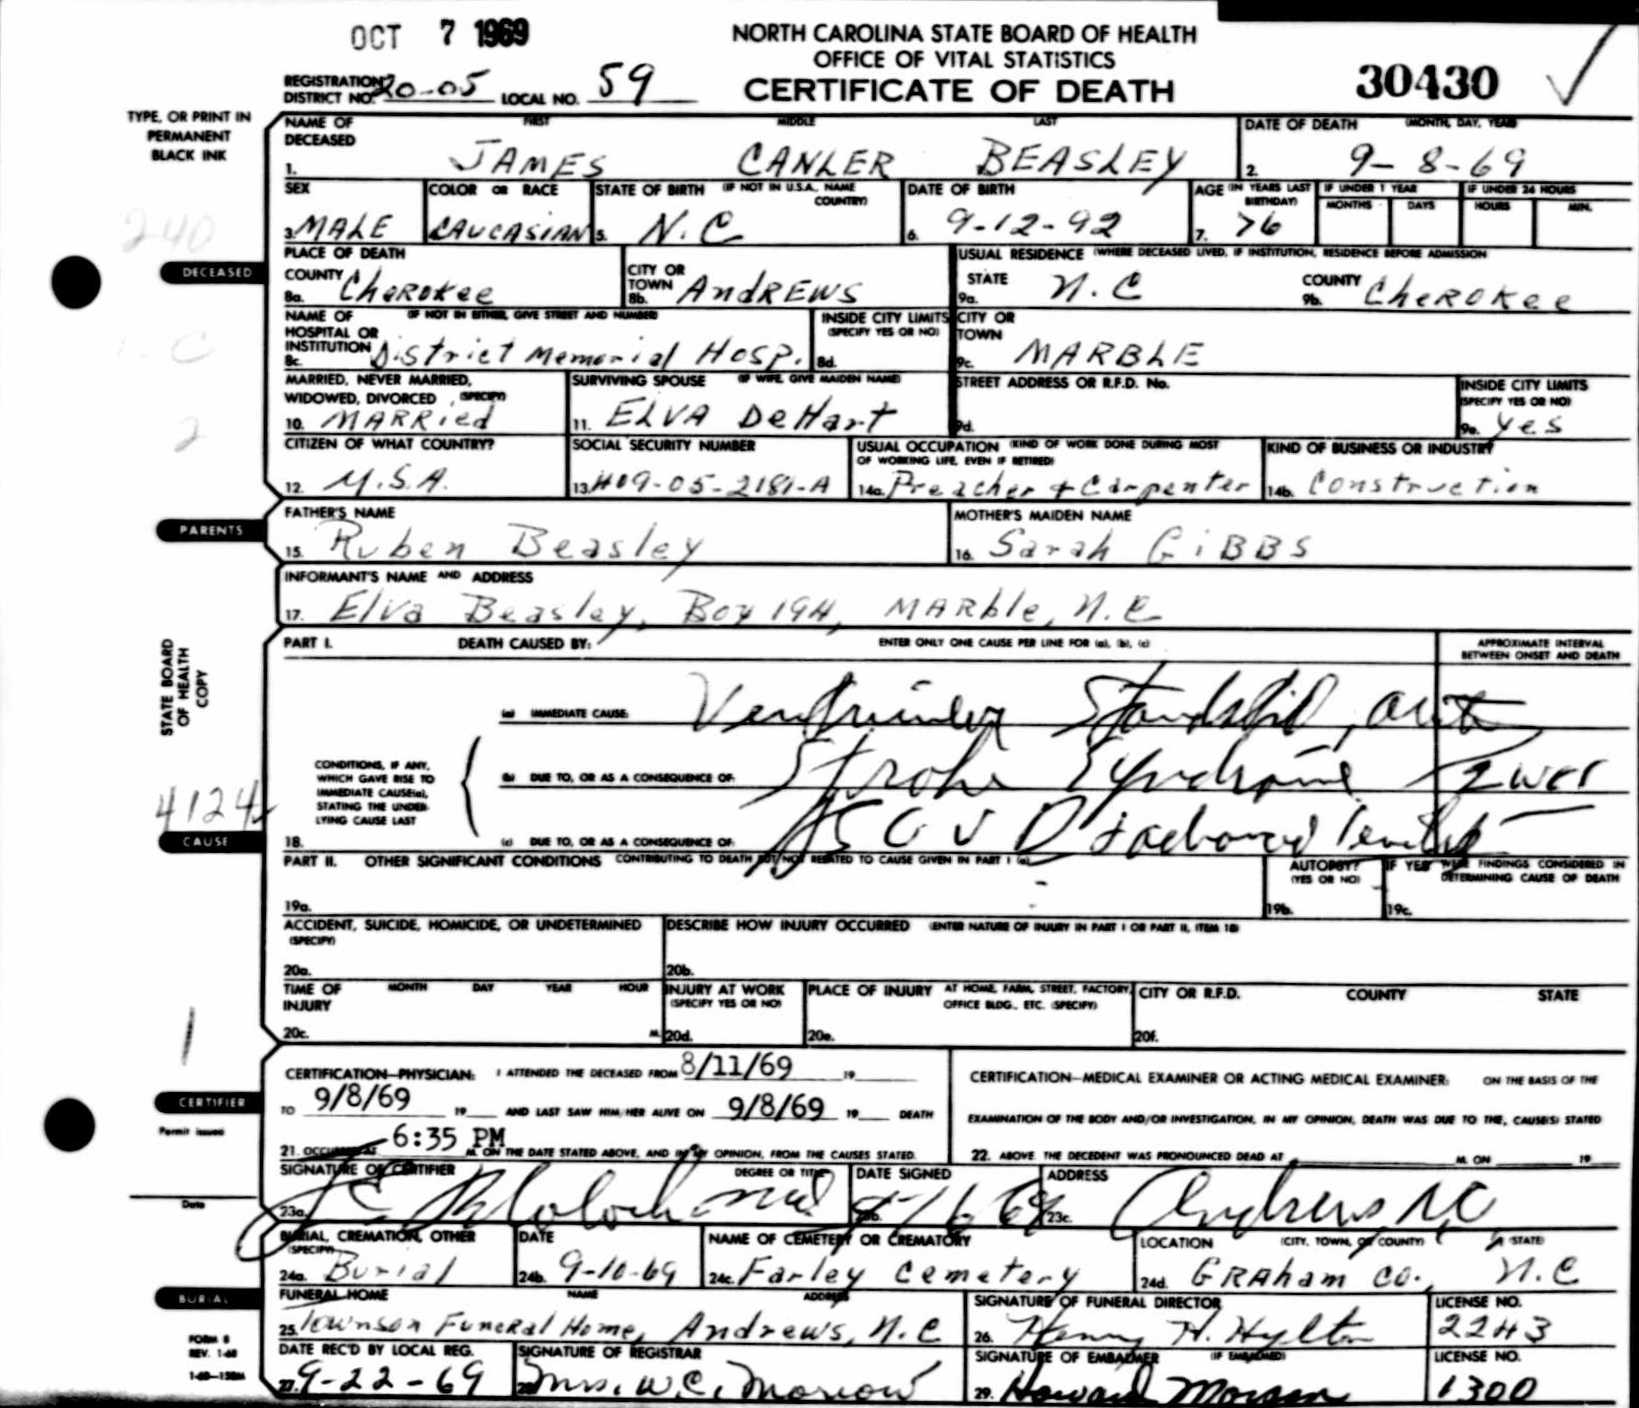 OCT 7 1969
NORTH CAROLINA STATE BOARD OF HEALTH
OFFICE OF VITAL STATISTICS
CERTIFICATE OF DEATH
30430
REGISTRATION DISTRICT NO. 20-05 LOCAL NO. 59
TYPE, OR PRINT IN PERMANENT BLACK INK
NAME OF DECEASED FIRST MIDDLE LAST
1. JAMES CANLER BEASLEY
DATE OF DEATH (MONTH, DAY, YEAR)
2. 9-8-69
SEX
3. MALE
COLOR OR RACE
4. CAUCASIAN
STATE OF BIRTH (IF NOT IN U.S.A., NAME COUNTRY)
5. N.C
DATE OF BIRTH
6. 9-12-92
AGE (IN YEARS LAST BIRTHDAY)
7. 76
IF UNDER 1 YEAR MONTHS DAYS
IF UNDER 24 HOURS HOURS MIN.
240
DECEASED
PLACE OF DEATH
COUNTY
8a. Cherokee
CITY OR TOWN
8b. ANDREWS
USUAL RESIDENCE (WHERE DECEASED LIVED, IF INSTITUTION, RESIDENCE BEFORE ADMISSION
STATE
9a. N.C
COUNTY
9b. Cherokee
NAME OF HOSPITAL OR INSTITUTION (IF NOT IN EITHER, GIVE STREET AND NUMBER)
8c. District Memorial HOSP.
INSIDE CITY LIMITS (SPECIFY YES OR NO)
8d.
CITY OR TOWN
9c. MARBLE
MARRIED, NEVER MARRIED, WIDOWED, DIVORCED (SPECIFY)
10. MARRied
SURVIVING SPOUSE (IF WIFE, GIVE MAIDEN NAME)
11. ELVA DeHart
STREET ADDRESS OR R.F.D. No.
9d.
INSIDE CITY LIMITS (SPECIFY YES OR NO)
9e. yes
2
CITIZEN OF WHAT COUNTRY?
12. U.S.A.
SOCIAL SECURITY NUMBER
13. 409-05-2181-A
USUAL OCCUPATION (KIND OF WORK DONE DURING MOST OF WORKING LIFE, EVEN IF RETIRED)
14a. Preacher + Carpenter
KIND OF BUSINESS OR INDUSTRY
14b. Construction
PARENTS
FATHER'S NAME
15. Ruben Beasley
MOTHER'S MAIDEN NAME
16. Sarah GiBBS
INFORMANT'S NAME AND ADDRESS
17. Elva Beasley, Box 194, MARble, N.C
STATE BOARD OF HEALTH COPY
PART I. DEATH CAUSED BY: ENTER ONLY ONE CAUSE PER LINE FOR (a), (b), (c)
APPROXIMATE INTERVAL BETWEEN ONSET AND DEATH
(a) IMMEDIATE CAUSE: Ventricular Standstill, acute
CONDITIONS, IF ANY, WHICH GAVE RISE TO IMMEDIATE CAUSE(a), STATING THE UNDERLYING CAUSE LAST
(b) DUE TO, OR AS A CONSEQUENCE OF: Stroke Syndrome 2 wks
4124
CAUSE
18. (c) DUE TO, OR AS A CONSEQUENCE OF: ASCVD + advanced
PART II. OTHER SIGNIFICANT CONDITIONS CONTRIBUTING TO DEATH BUT NOT RELATED TO CAUSE GIVEN IN PART I (a)
19a.
AUTOPSY? (YES OR NO)
19b.
IF YES WERE FINDINGS CONSIDERED IN DETERMINING CAUSE OF DEATH
19c.
ACCIDENT, SUICIDE, HOMICIDE, OR UNDETERMINED (SPECIFY)
20a.
DESCRIBE HOW INJURY OCCURRED (ENTER NATURE OF INJURY IN PART I OR PART II, ITEM 18)
20b.
TIME OF INJURY MONTH DAY YEAR HOUR
20c. M.
INJURY AT WORK (SPECIFY YES OR NO)
20d.
PLACE OF INJURY AT HOME, FARM, STREET, FACTORY, OFFICE BLDG., ETC. (SPECIFY)
20e.
CITY OR R.F.D. COUNTY STATE
20f.
1
CERTIFIER
Permit issued
Date
CERTIFICATION—PHYSICIAN: I ATTENDED THE DECEASED FROM 8/11/69 19
TO 9/8/69 19 AND LAST SAW HIM/HER ALIVE ON 9/8/69 19 DEATH
21. OCCURRED AT 6:35 PM M. ON THE DATE STATED ABOVE, AND IN MY OPINION, FROM THE CAUSES STATED.
CERTIFICATION—MEDICAL EXAMINER OR ACTING MEDICAL EXAMINER: ON THE BASIS OF THE
EXAMINATION OF THE BODY AND/OR INVESTIGATION, IN MY OPINION, DEATH WAS DUE TO THE, CAUSE(S) STATED
22. ABOVE. THE DECEDENT WAS PRONOUNCED DEAD AT M. ON 19
SIGNATURE OF CERTIFIER DEGREE OR TITLE
23a. md
DATE SIGNED
23b.
ADDRESS
23c. Andrews, NC
BURIAL, CREMATION, OTHER (SPECIFY)
24a. Burial
DATE
24b. 9-10-69
NAME OF CEMETERY OR CREMATORY
24c. Farley Cemetery
LOCATION (CITY, TOWN, OR COUNTY) (STATE)
24d. GRAham CO., N.C
BURIAL
FUNERAL HOME NAME ADDRESS
25. Townson Funeral Home, Andrews, N.C
SIGNATURE OF FUNERAL DIRECTOR
26. Henry H. Hylton
LICENSE NO.
2243
FORM 8
REV. 1-68
DATE REC'D BY LOCAL REG.
27. 9-22-69
SIGNATURE OF REGISTRAR
28. Mrs. W.C. Morrow
SIGNATURE OF EMBALMER (IF EMBALMED)
29. Howard Morgan
LICENSE NO.
1300